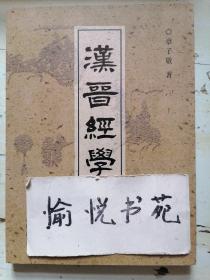 漢晉經學
◎章子敬 著
愉悦书苑